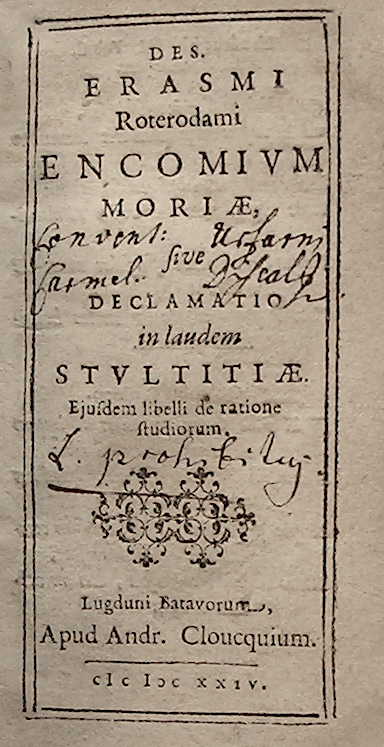 DES.
ERASMI
Roterodami
ENCOMIVM
MORIÆ,
Convent:
ſive
Carmel. Discal:
DECLAMATIO
in laudem
STVLTITIÆ.
Ejuſdem libelli de ratione
ſtudiorum.
L. prohibitus.
Lugduni Batavorum,
Apud Andr. Cloucquium.
cIɔ Iɔc XXIV.